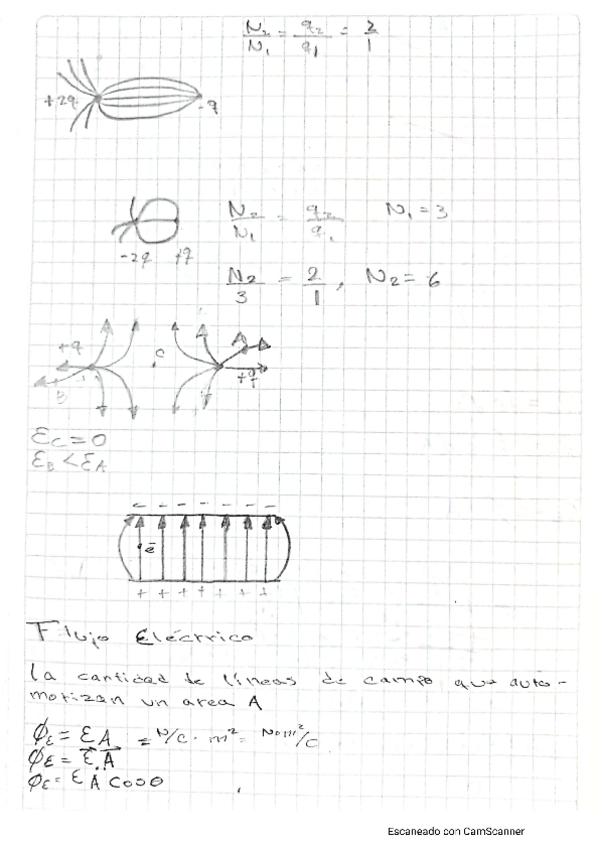 N₂/N₁ = q₂/q₁ = 2/1
+2q -q
N₂/N₁ = q₂/q₁ N₁ = 3
-2q +q
N₂/3 = 2/1, N₂ = 6
+q C A
B +q
Ec = 0
E_B < E_A
- - - - - - -
ē
+ + + + + + +
Flujo Eléctrico
la cantidad de líneas de campo que auto-
motizan un area A
ϕε = εA = N/C · m² = Nom²/C
ϕε = ε⃗.A⃗
ϕε = εA Cosθ
Escaneado con CamScanner